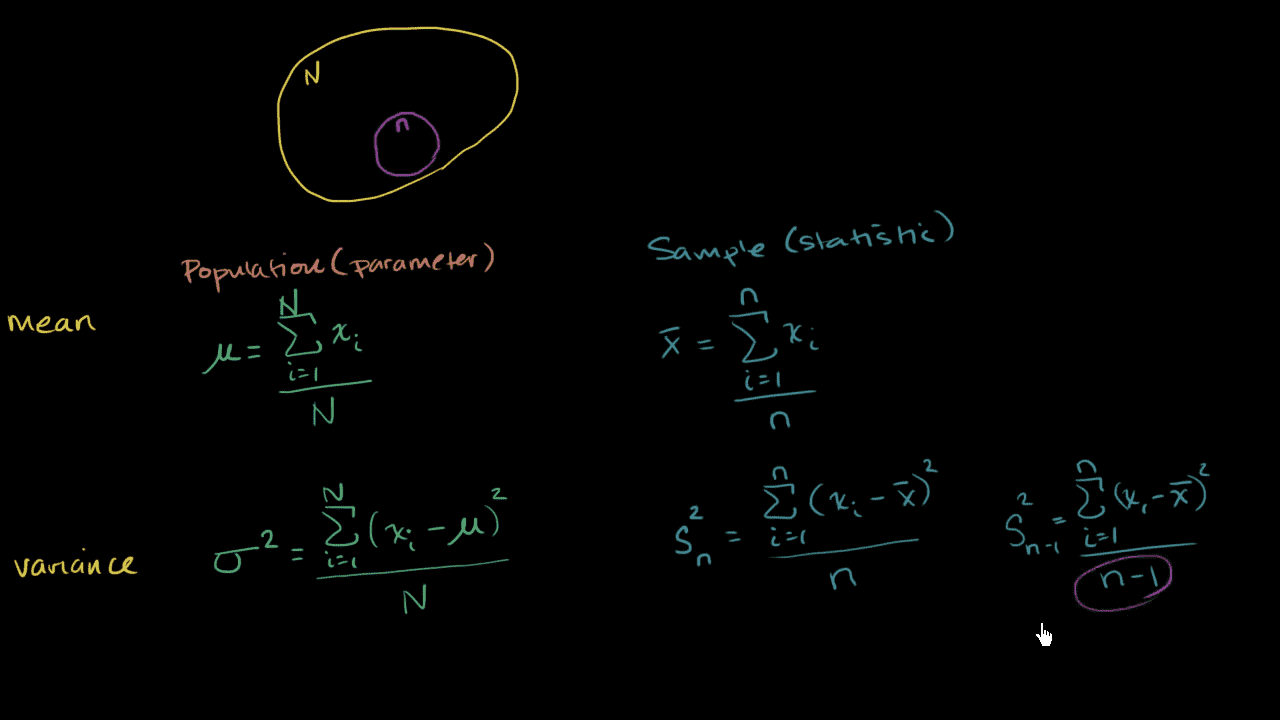 N
n
Population (parameter)
Sample (statistic)
mean
μ = N∑i=1 xi / N
x̄ = n∑i=1 xi / n
variance
σ² = N∑i=1 (xi - μ)² / N
Sn² = n∑i=1 (xi - x̄)² / n
Sn-1² = n∑i=1 (xi - x̄)² / n-1